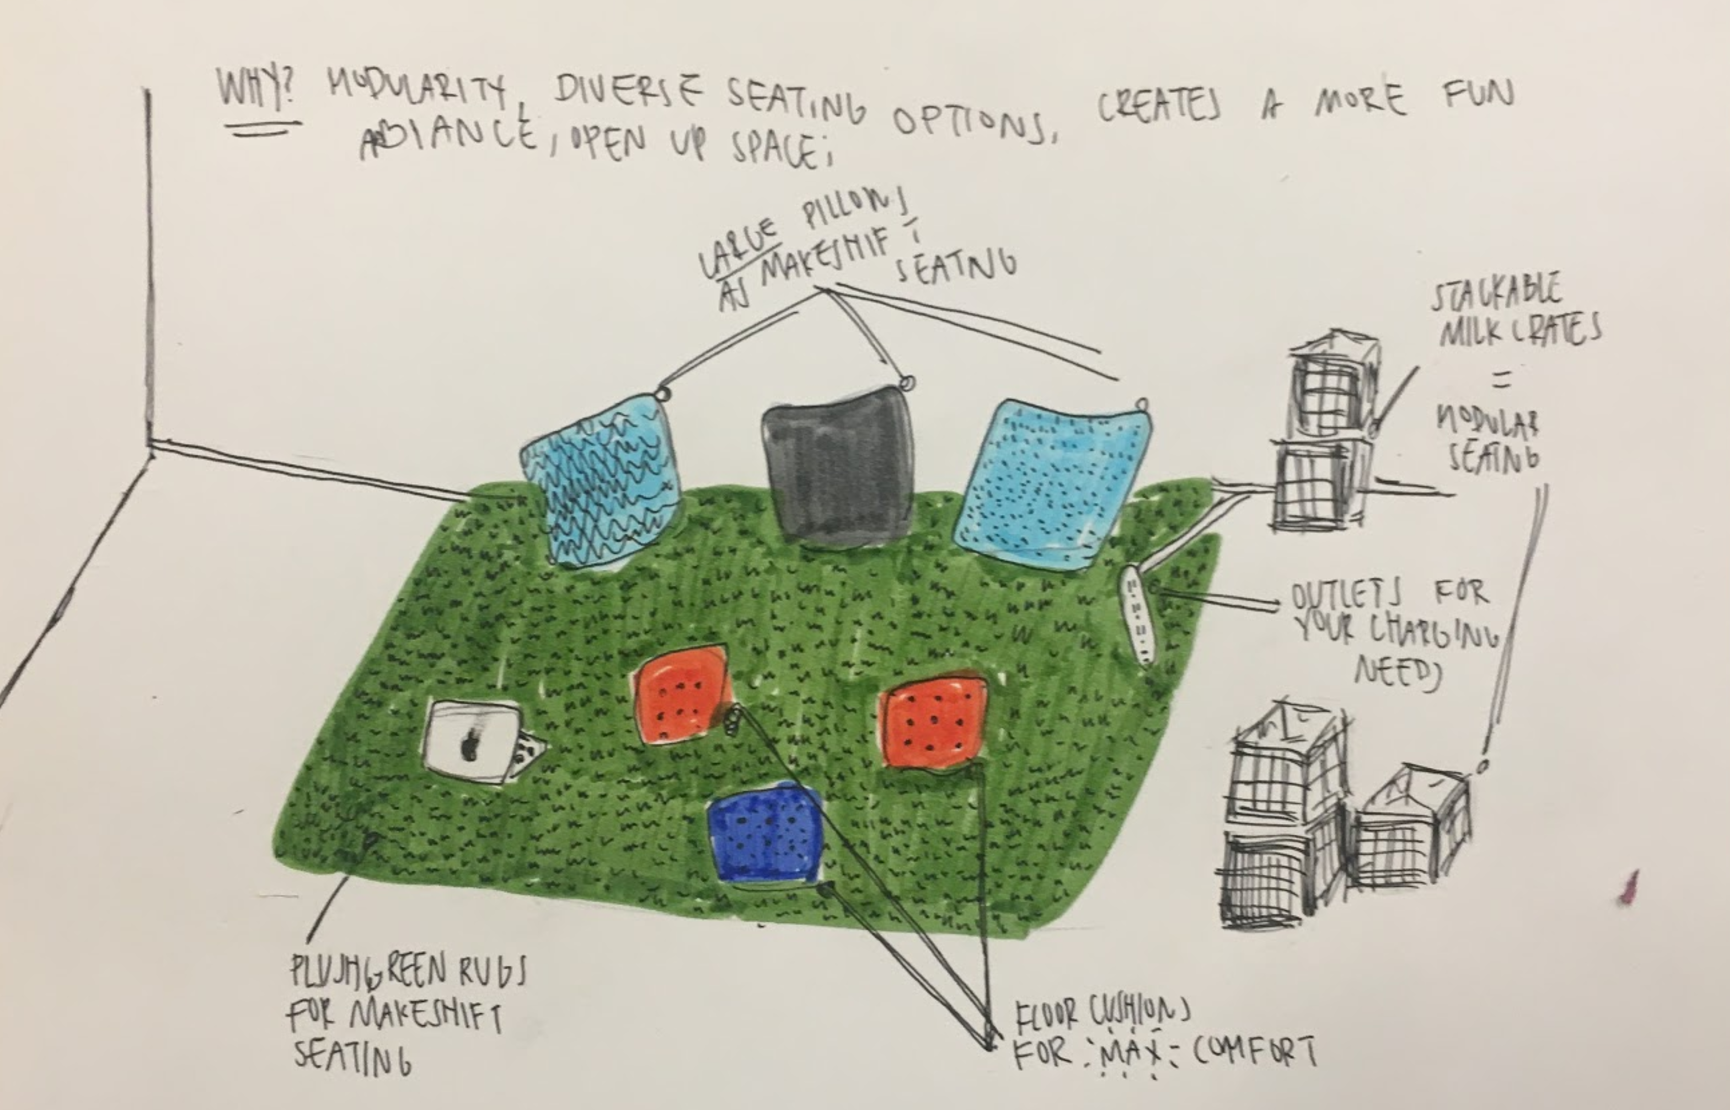 WHY? MODULARITY, DIVERSE SEATING OPTIONS, CREATES A MORE FUN
ABIANCE, OPEN UP SPACE;
LARGE PILLOWS
AS MAKESHIFT
SEATNG
STACKABLE
MILK CRATES
=
MODULAR
SEATNG
OUTLETS FOR
YOUR CHARGING
NEEDS
PLUSH GREEN RUGS
FOR MAKESHIFT
SEATING
FLOOR CUSHIONS
FOR MAX COMFORT